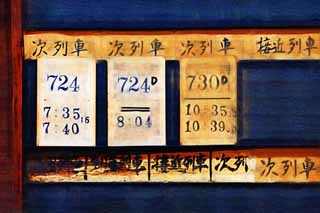 次列車 次列車 次列車 接近列車
724 724D 730D
7:35 15 == 10:35
7:40 8:04 10:39
次列車 接近列車 次列 次列車